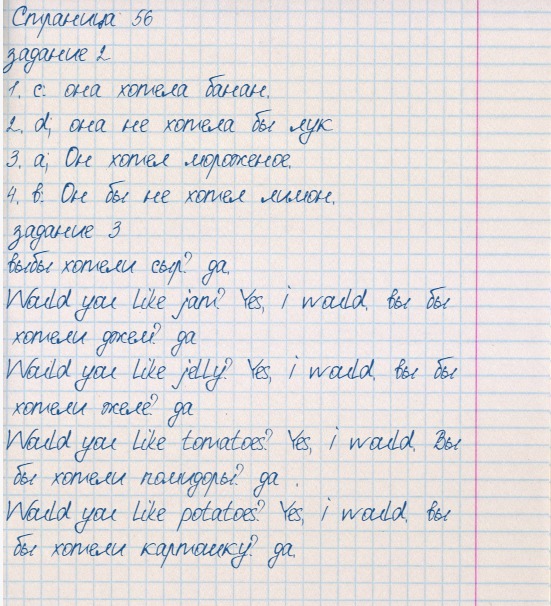 Страница 56
задание 2
1. c. она хотела банан.
2. d; она не хотела бы лук
3. a; Он хотел мороженое.
4. b. Он бы не хотел лимон.
задание 3
выбы хотели сыр? да.
Would you like jam? Yes, i would. вы бы
хотели джем? да
Would you like jelly? Yes, i would. вы бы
хотели желе? да
Would you like tomatoes? Yes, i would. Вы
бы хотели помидоры? да.
Would you like potatoes? Yes, i would. вы
бы хотели картошку? да.